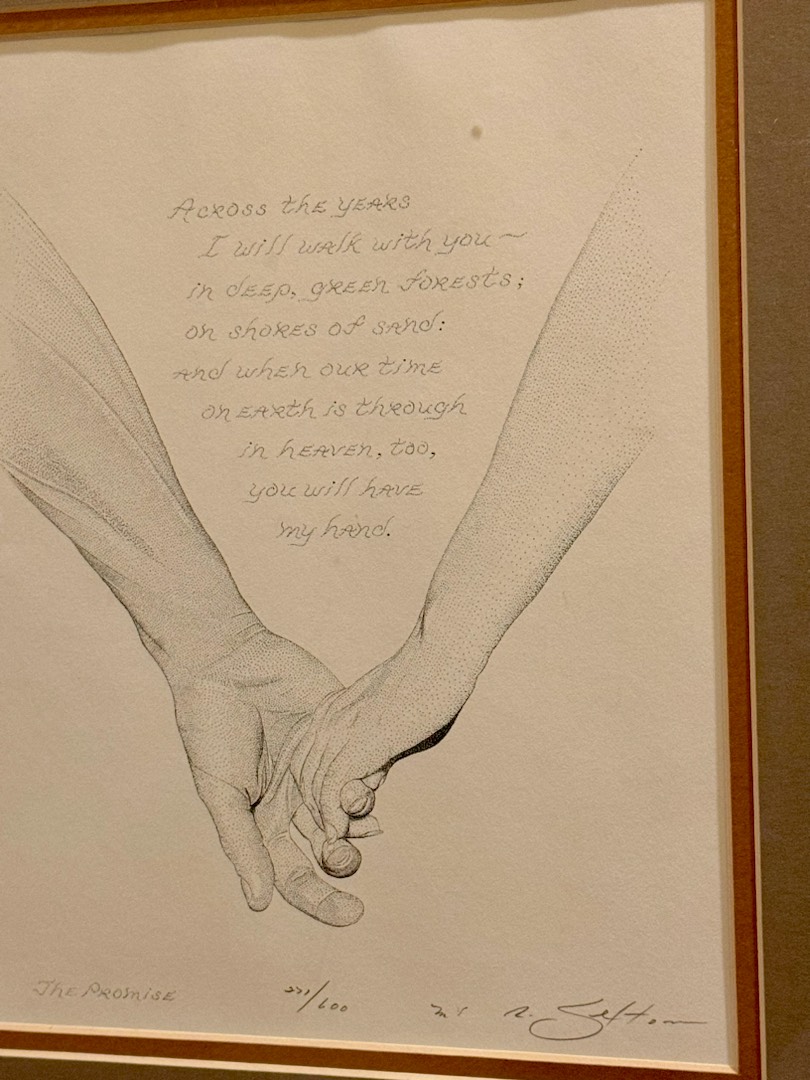 Across the years
I will walk with you~
in deep, green forests;
on shores of sand:
and when our time
on earth is through
in heaven, too,
you will have
my hand.
The Promise 221/600 R. Sefton